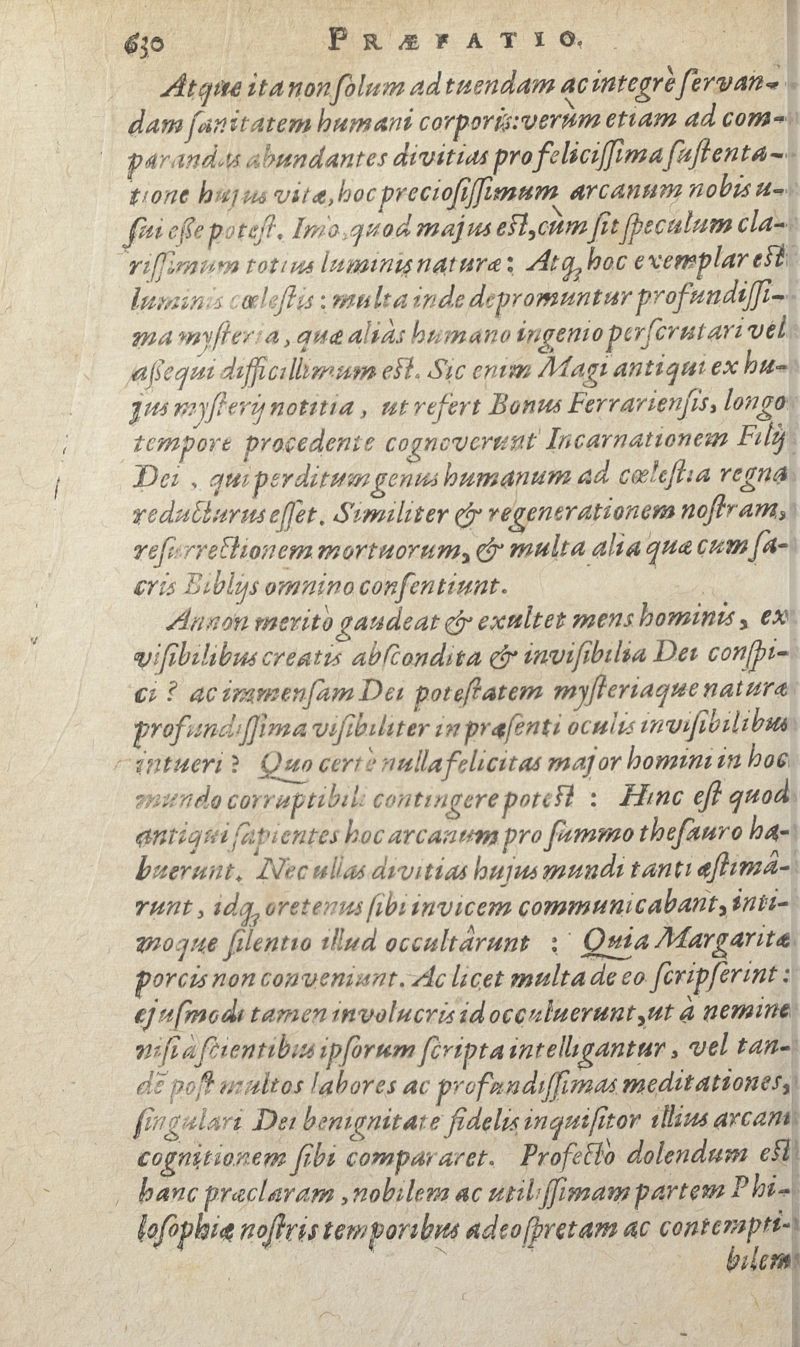 630 PRÆFATIO.
Atque ita non ſolum ad tuendam ac integrè ſervan-
dam ſanitatem humani corporis: verùm etiam ad com-
parandas abundantes divitias pro feliciſſima ſuſtenta-
tione hujus vitæ, hoc precioſiſſimum arcanum nobis u-
ſui eſſe poteſt. Imò, quod majus eſt, cùm ſit ſpeculum cla-
riſſimum totius luminis naturæ; Atq; hoc exemplar eſt
luminis cœleſtis: multa inde depromuntur profundiſſi-
ma myſteria, quæ aliàs humano ingenio perſcrutari vel
aſſequi difficillimum eſt. Sic enim Magi antiqui ex hu-
jus myſterij notitia, ut refert Bonus Ferrarienſis, longo
tempore procedente cognoverunt Incarnationem Filij
Dei, qui perditum genus humanum ad cœleſtia regna
reducturus eſſet. Similiter & regenerationem noſtram,
reſurrectionem mortuorum, & multa alia quæ cum ſa-
cris Biblijs omnino conſentiunt.
Annon meritò gaudeat & exultet mens hominis, ex
viſibilibus creatis abſcondita & inviſibilia Dei conſpi-
ci? ac immenſam Dei poteſtatem myſteriaque naturæ
profundiſſima viſibiliter in præſenti oculis inviſibilibus
intueri? Quo certè nulla felicitas major homini in hoc
mundo corruptibili contingere poteſt: Hinc eſt quod
antiqui ſapientes hoc arcanum pro ſummo theſauro ha-
buerunt. Nec ullas divitias hujus mundi tanti æſtimâ-
runt, idq; oretenus ſibi invicem communicabant, inti-
moque ſilentio illud occultârunt: Quia Margaritæ
porcis non conveniunt. Ac licet multa de eo ſcripſerint:
ejuſmodi tamen involucris id occuluerunt, ut à nemine
niſi à ſcientibus ipſorum ſcripta intelligantur, vel tan-
dẽ poſt multos labores ac profundiſſimas meditationes,
ſingulari Dei benignitate fidelis inquiſitor illius arcani
cognitionem ſibi compararet. Profectò dolendum eſt
hanc præclaram, nobilem ac utiliſſimam partem Phi-
loſophiæ noſtris temporibus adeo ſpretam ac contempti-
bilem